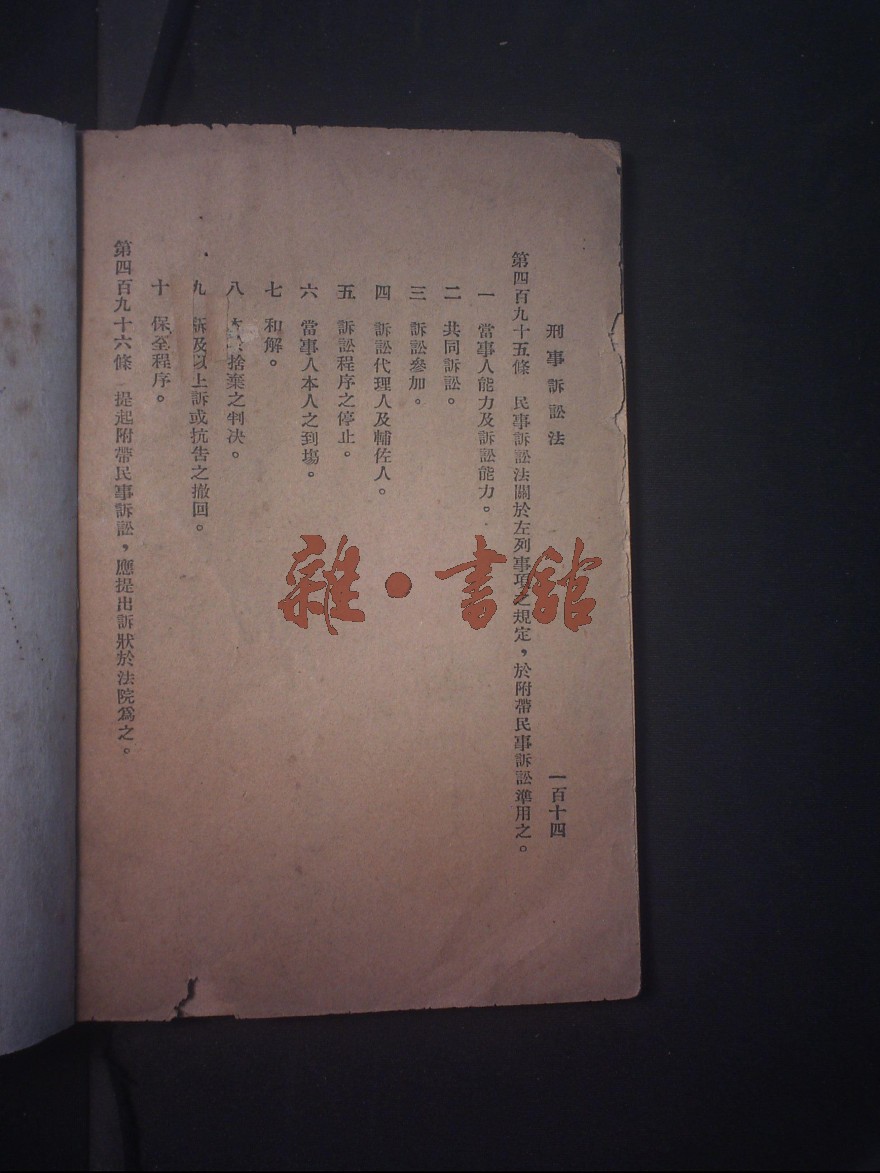 刑事訴訟法
一百十四
第四百九十五條 民事訴訟法關於左列事項之規定，於附帶民事訴訟準用之。
一 當事人能力及訴訟能力。
二 共同訴訟。
三 訴訟參加。
四 訴訟代理人及輔佐人。
五 訴訟程序之停止。
六 當事人本人之到場。
七 和解。
八 本 捨棄之判決。
九 訴及以上訴或抗告之撤回。
十 保全程序。
第四百九十六條 提起附帶民事訴訟，應提出訴狀於法院爲之。
雜·書館